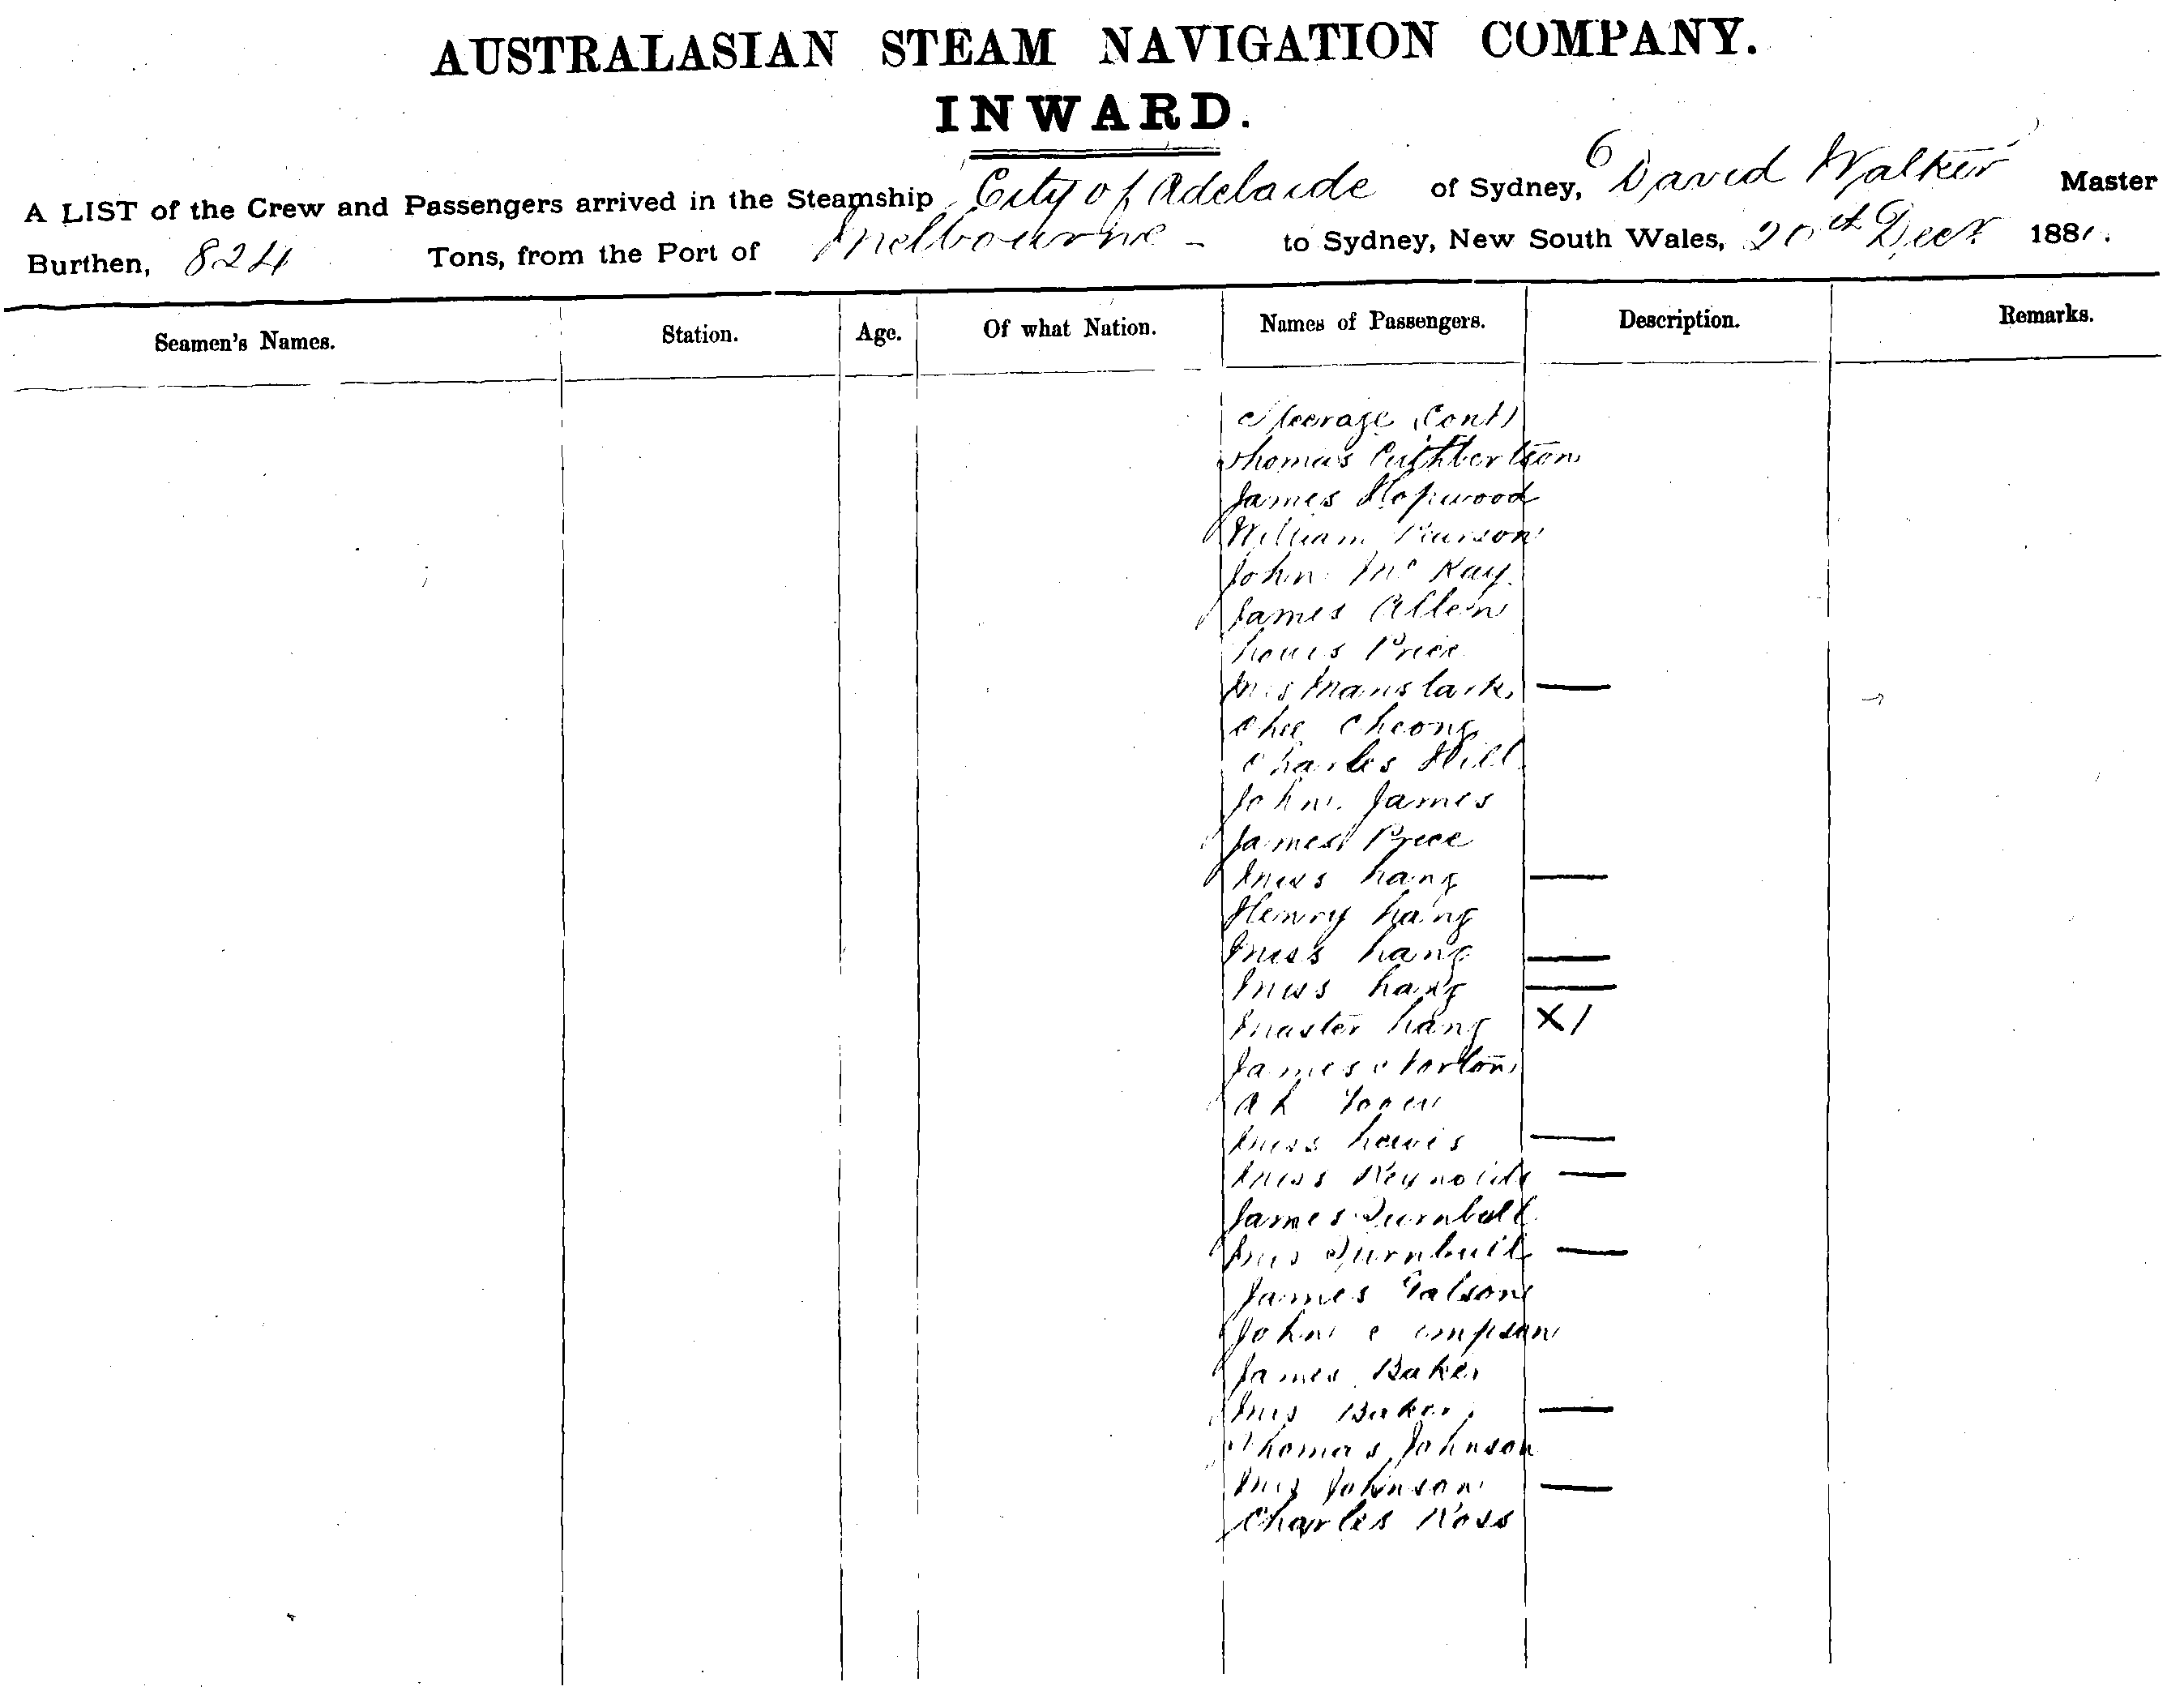 AUSTRALASIAN STEAM NAVIGATION COMPANY.
INWARD.
A LIST of the Crew and Passengers arrived in the Steamship City of Adelaide of Sydney, David Walker Master
Burthen, 824 Tons, from the Port of Melbourne - to Sydney, New South Wales, 20th Decr 1881.
Seamen's Names. Station. Age. Of what Nation. Names of Passengers. Description. Remarks.
Steerage (Cont)
Thomas Cuthbertson
James Hopwood
William Pearson
John Mc Kay
James Allen
Louis Price
Mrs —
Chee Cheong
Charles Hill
John James
James Price
Miss Lang —
Henry Lang
Miss Lang —
Miss Lang —
Master Lang X 1
James Norton
Ah
Miss Lewis —
Miss Reynolds —
James Turnbull
Mrs Turnbull —
James
John
James Baker
Mrs Baker —
Thomas Johnson
Mrs Johnson —
Charles Ross